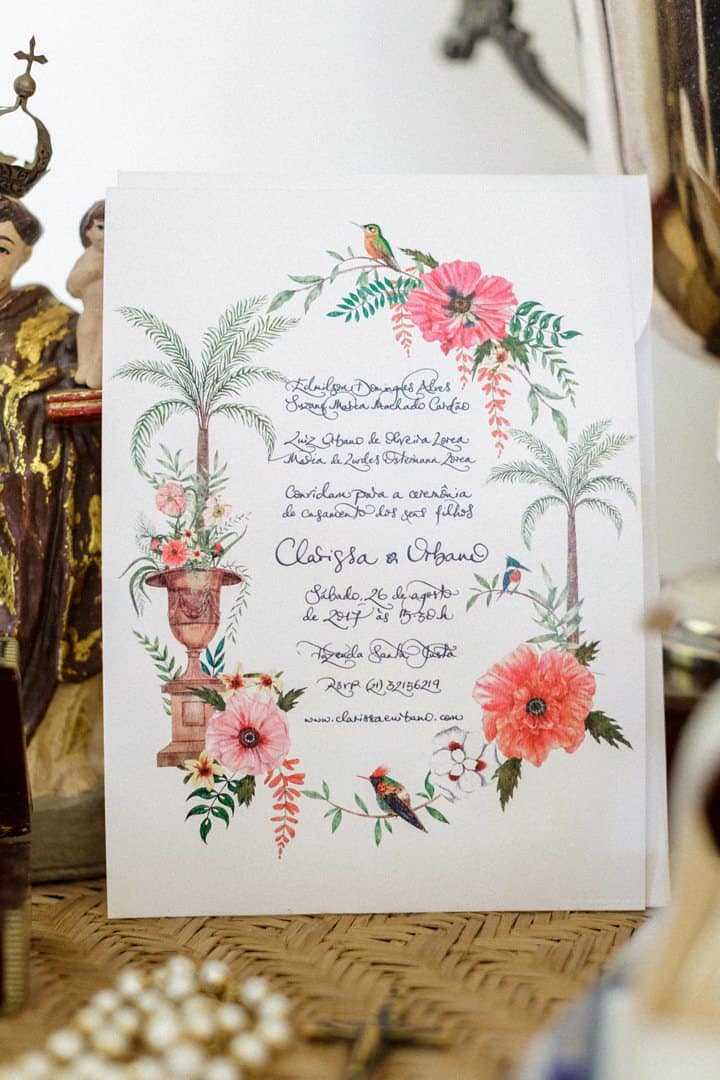 Edmilson Domingues Alves
Suzana Maria Machado Cardão
Luiz Urbano de Oliveira Zorea
Maria de Lurdes Ostermann Zorea
Convidam para a cerimônia
de casamento dos seus filhos
Clarissa & Urbano
Sábado, 26 de agosto
de 2017 às 15:30h
Fazenda Santa Justa
RSVP (21) 32156219
www.clarissaeurbano.com